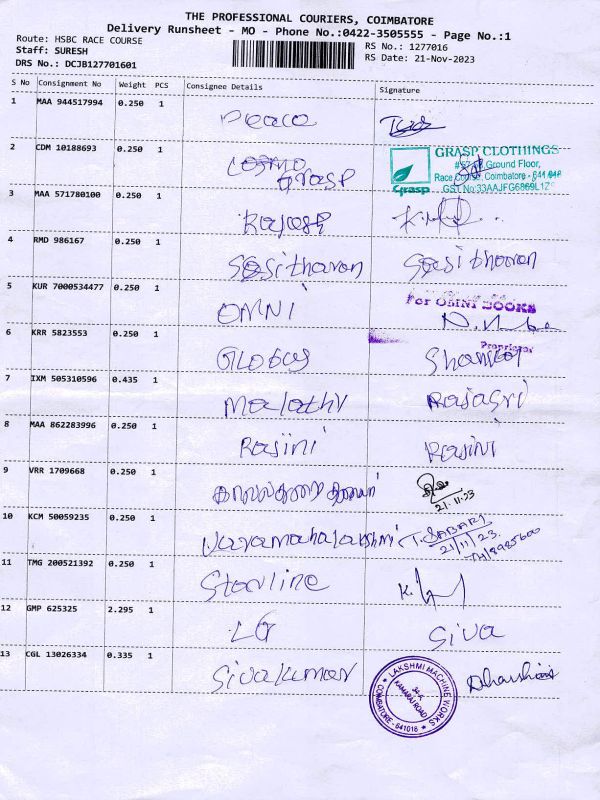 THE PROFESSIONAL COURIERS, COIMBATORE
Delivery Runsheet - MO - Phone No.:0422-3505555 - Page No.:1
Route: HSBC RACE COURSE
Staff: SURESH
DRS No.: DCJB127701601
RS No.: 1277016
RS Date: 21-Nov-2023
S No Consignment No Weight PCS Consignee Details Signature
1 MAA 944517994 0.250 1 Peace
2 CDM 10188693 0.250 1 Grasp
GRASP CLOTHINGS
Ground Floor,
Race Course, Coimbatore - 641 018
Grasp
3 MAA 571780100 0.250 1 Rajesh
4 RMD 986167 0.250 1 Sasitharan Sasitharan
5 KUR 7000534477 0.250 1 OMNI
For OMNI BOOKS
Proprietor
6 KRR 5823553 0.250 1 Globus
7 IXM 505310596 0.435 1 Malathi Rajasri
8 MAA 862283996 0.250 1 Rasini Rasini
9 VRR 1709668 0.250 1
21.11.23
10 KCM 50059235 0.250 1 Varamahalakshmi T. SABARI
21/11/23.
11 TMG 200521392 0.250 1 Starline
12 GMP 625325 2.295 1 LG Siva
13 CGL 13026334 0.335 1 Sivakumar Dharshini
LAKSHMI MACHINE WORKS
KAMARAJ ROAD
COIMBATORE - 641018